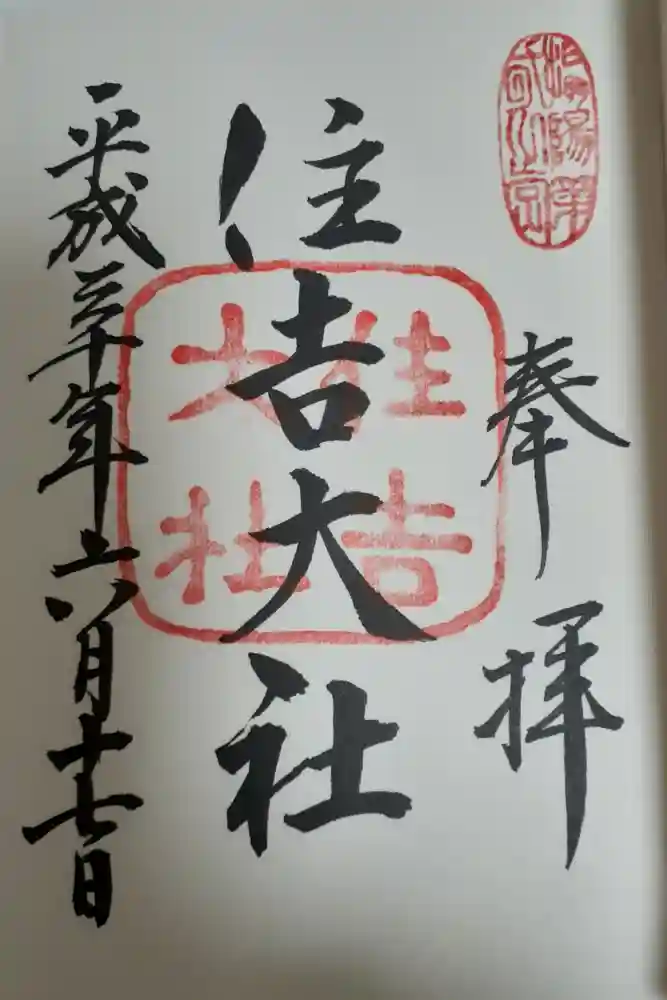 奉拝
住吉大社
住吉大社
平成三十年六月十七日